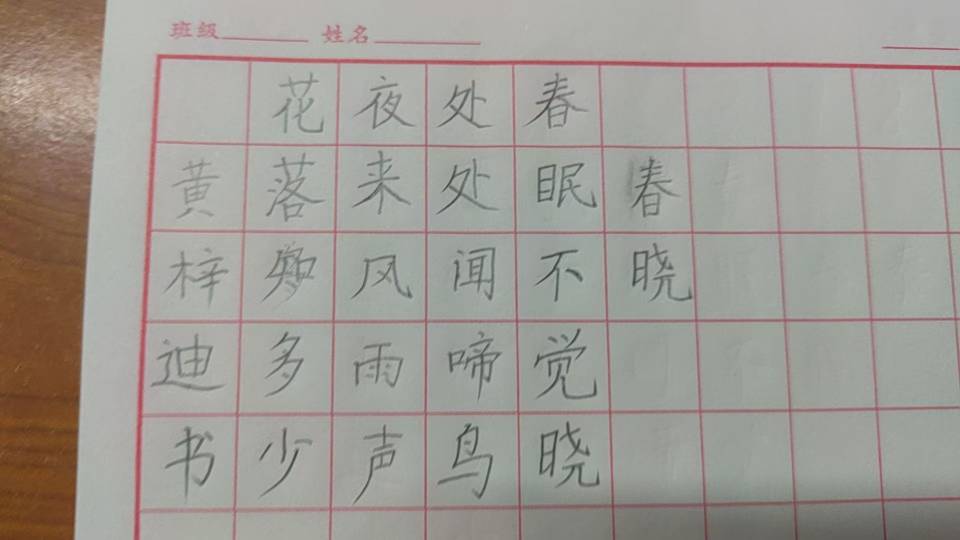 班级 姓名
春晓
春眠不觉晓
处处闻啼鸟
夜来风雨声
花落知多少
黄梓迪书